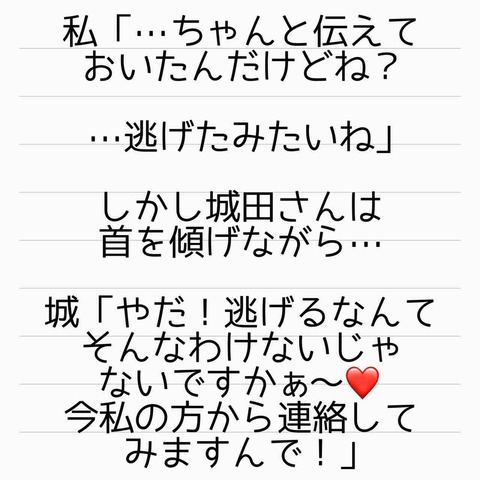 私「…ちゃんと伝えて
おいたんだけどね？
…逃げたみたいね」
しかし城田さんは
首を傾げながら…
城「やだ！逃げるなんて
そんなわけないじゃ
ないですかぁ〜❤️
今私の方から連絡して
みますんで！」